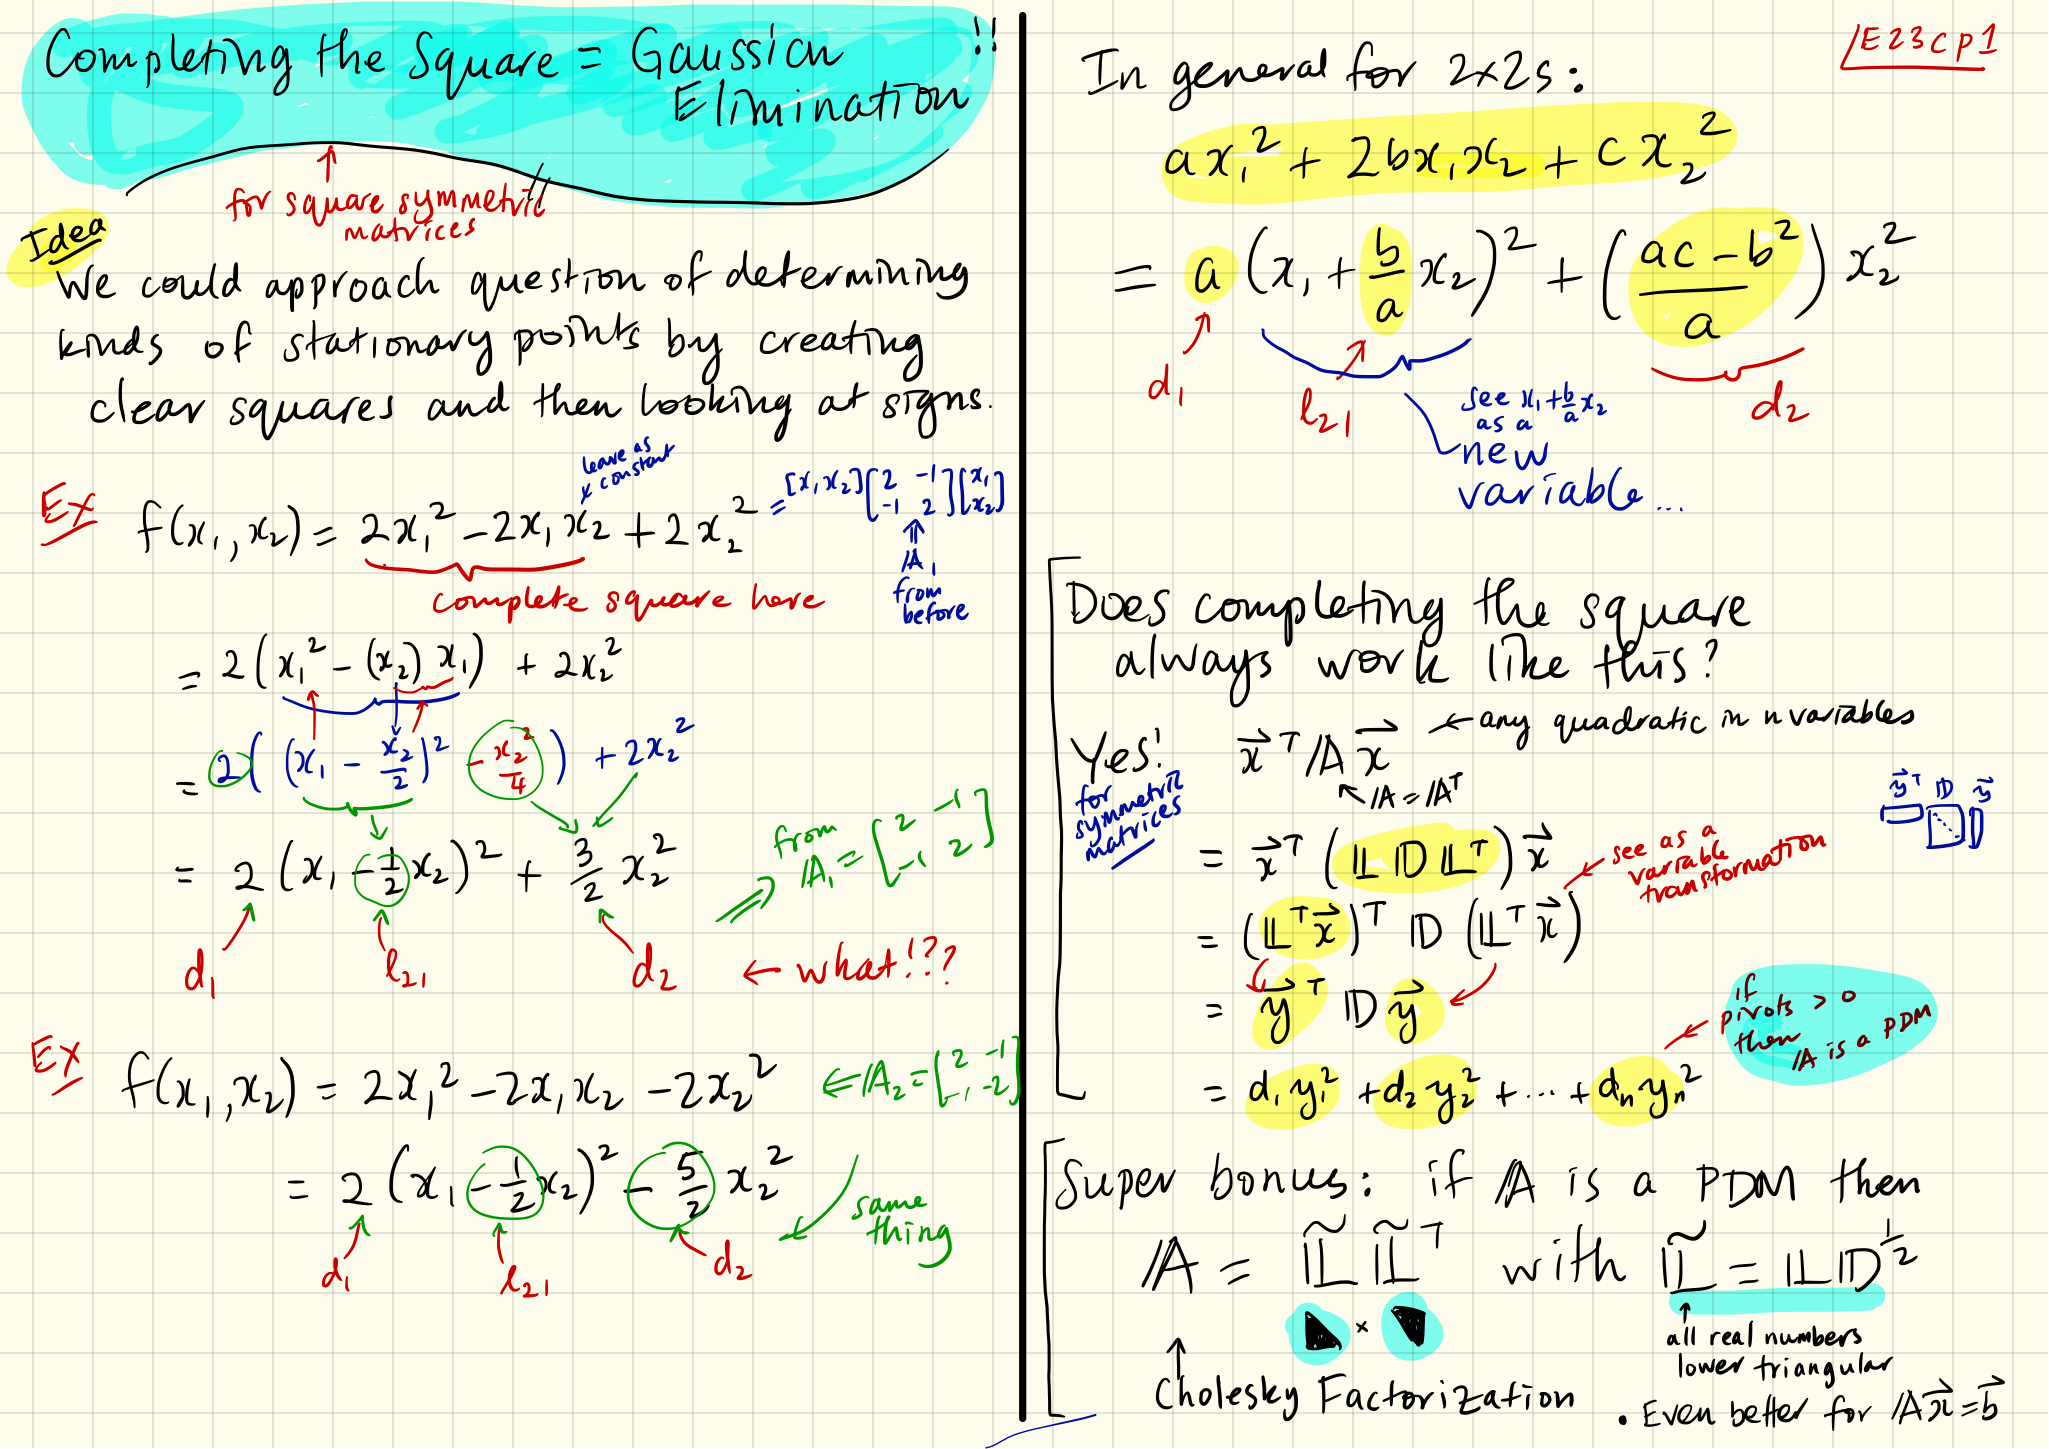 Completing the Square = Gaussian !!
Elimination
for square symmetric
matrices
Idea
We could approach question of determining
kinds of stationary points by creating
clear squares and then looking at signs.
leave as
constant
Ex
f(x₁, x₂) = 2x₁² − 2x₁x₂ + 2x₂² = [x₁ x₂] [2 −1; −1 2] [x₁; x₂]
complete square here
𝔸₁
from
before
= 2(x₁² − (x₂) x₁) + 2x₂²
= 2((x₁ − x₂/2)² − x₂²/4) + 2x₂²
= 2(x₁ − 1/2 x₂)² + 3/2 x₂²
from
𝔸₁ = [2 −1; −1 2]
d₁ l₂₁ d₂ ← what!??
Ex
f(x₁, x₂) = 2x₁² − 2x₁x₂ − 2x₂² ⇐ 𝔸₂ = [2 −1; −1 −2]
= 2(x₁ − 1/2 x₂)² − 5/2 x₂²
same
thing
d₁ l₂₁ d₂
E23cp1
In general for 2x2s:
ax₁² + 2bx₁x₂ + cx₂²
= a(x₁ + b/a x₂)² + ((ac − b²)/a) x₂²
d₁ l₂₁ d₂
see x₁ + b/a x₂
as a
new
variable...
Does completing the square
always work like this?
Yes!
for
symmetric
matrices
x⃗ᵀ 𝔸 x⃗ ← any quadratic in n variables
𝔸 = 𝔸ᵀ
y⃗ᵀ 𝔻 y⃗
= x⃗ᵀ (𝕃 𝔻 𝕃ᵀ) x⃗
see as a
variable
transformation
= (𝕃ᵀ x⃗)ᵀ 𝔻 (𝕃ᵀ x⃗)
= y⃗ᵀ 𝔻 y⃗
if
pivots > 0
then
𝔸 is a PDM
= d₁y₁² + d₂y₂² + ... + dₙyₙ²
Super bonus: if 𝔸 is a PDM then
𝔸 = 𝕃̃ 𝕃̃ᵀ with 𝕃̃ = 𝕃𝔻^½
×
all real numbers
lower triangular
Cholesky Factorization
• Even better for 𝔸x⃗ = b⃗